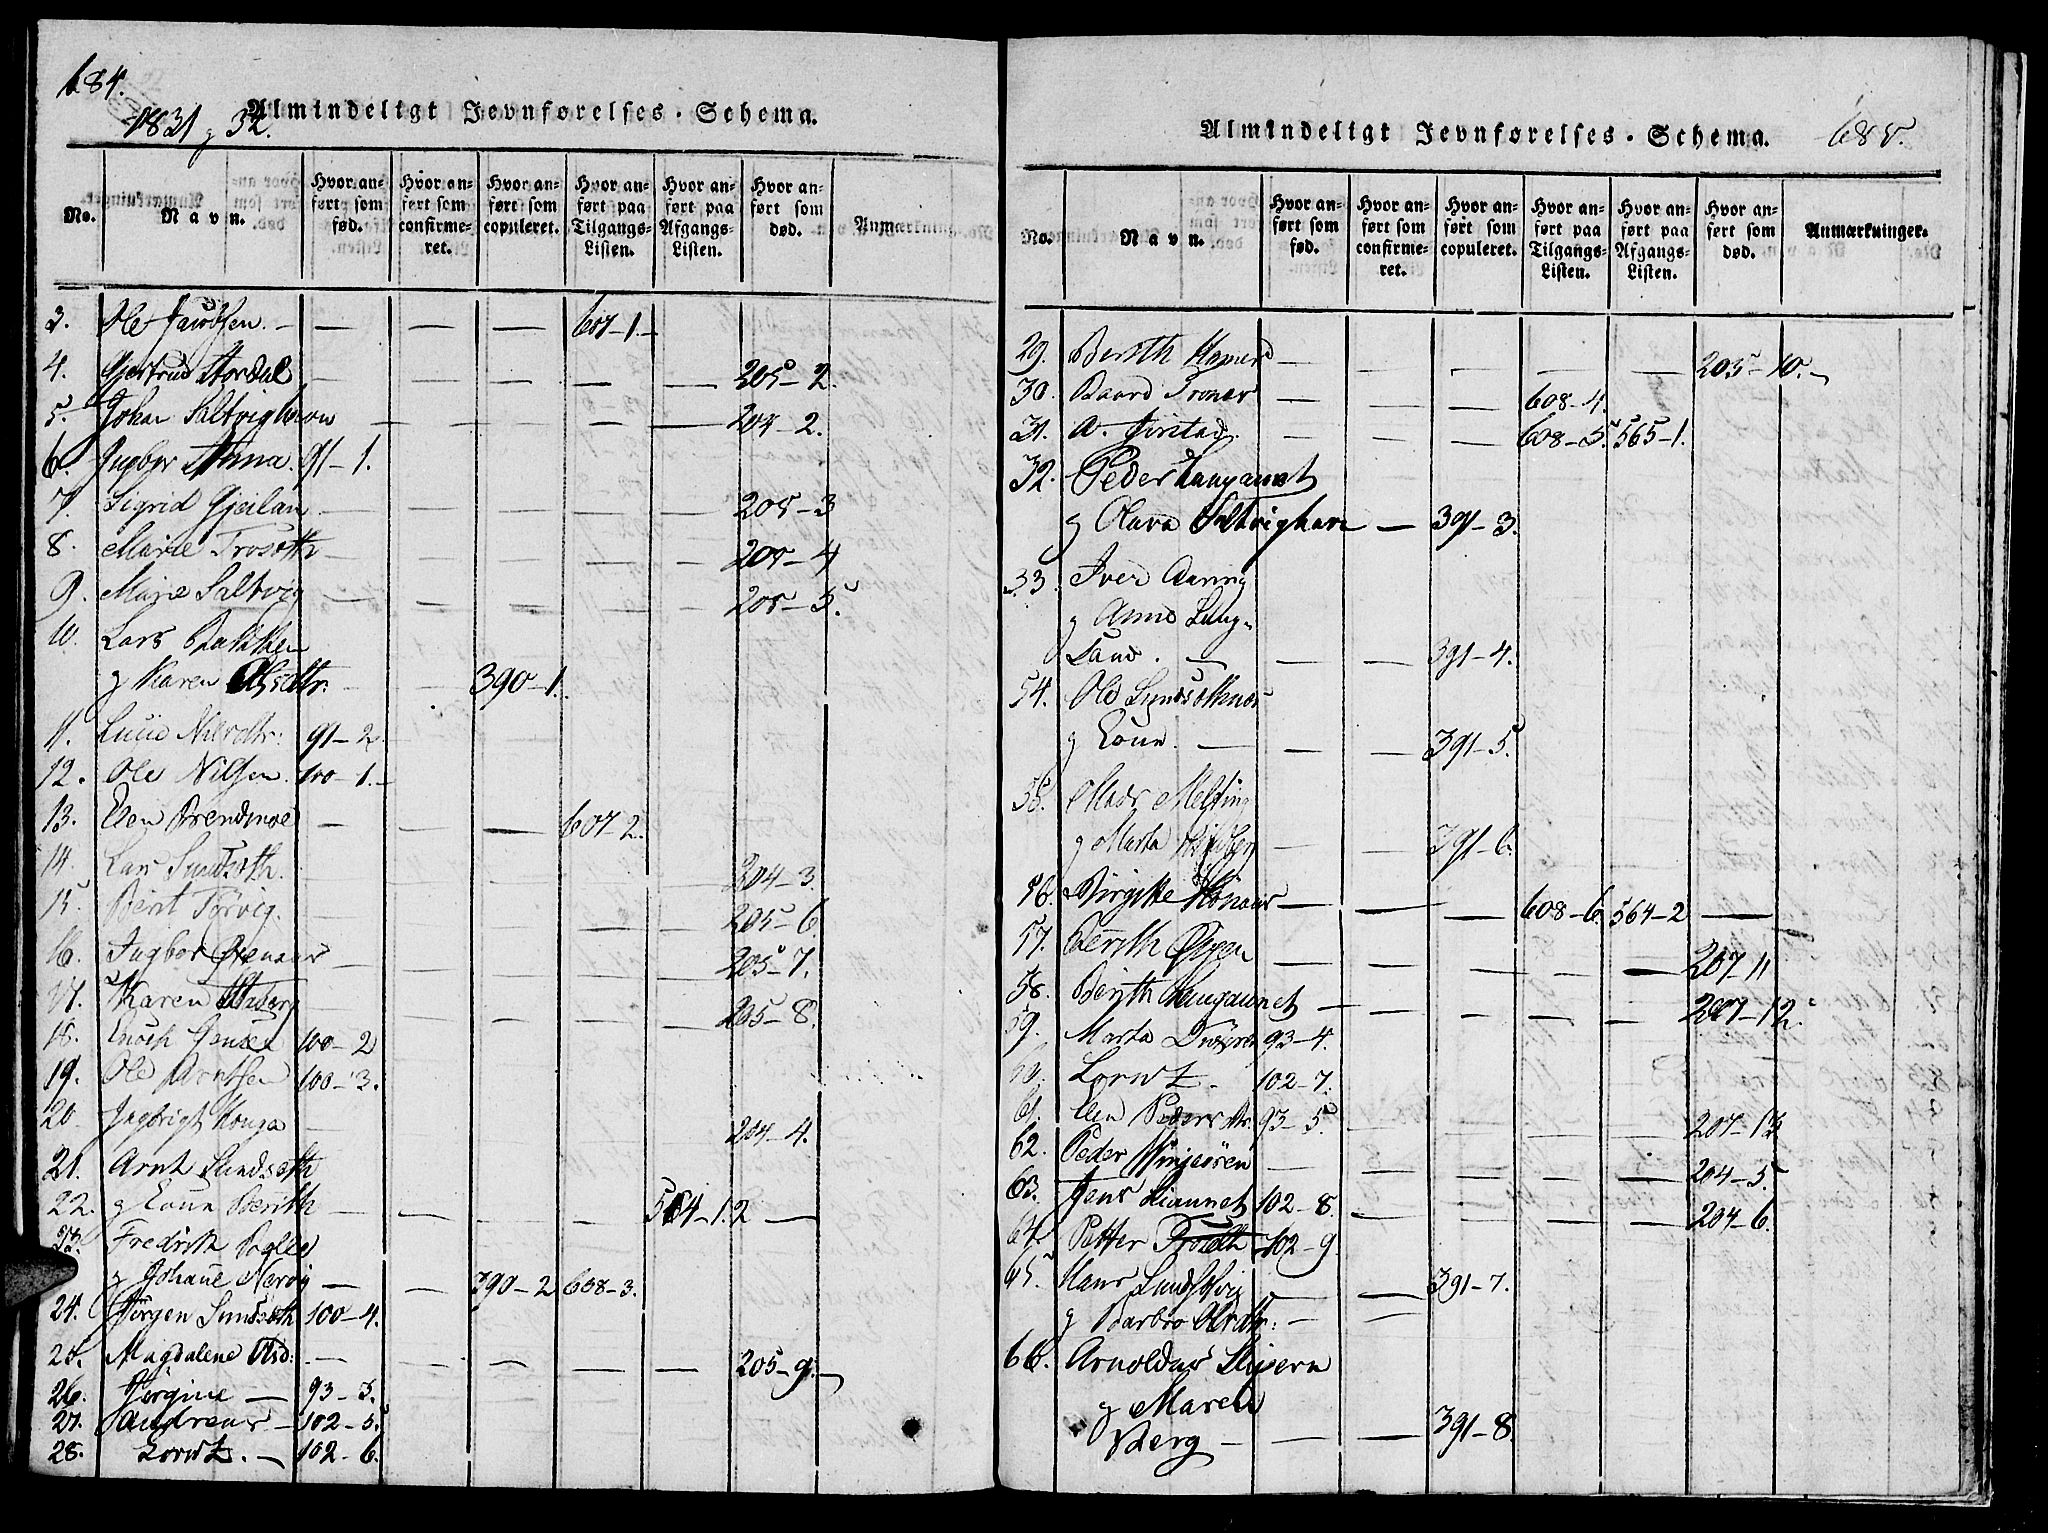 684.
1831 g 32.
Almindeligt Jevnførelses-Schema.
No.
Navn.
Hvor anført som fød.
Hvor anført som confirmeret.
Hvor anført som copuleret.
Hvor anført paa Tilgangs-Listen.
Hvor anført paa Afgangs-Listen.
Hvor anført som død.
Anmærkninger
3. Ole Jacobsen. — — — — 607-1. —
4. Gjertrud Stordal — — — — — 205-2.
5. Johan Saltvighavn — — — — — 204-2.
6. Ingbor Anna. 91-1.
7. Sigrid Gjeilan — — — — — 205-3
8. Marie — — — — — 205-4
9. Marie Saltvig — — — — — 205-5.
10. Lars Bakken
g Karen Olsdtr. — — 390-1.
11. Lucie Nilsdtr: 91-2.
12. Ole Nilsen. 100-1. —
13. Elen Brendmoe — — — 607-2.
14. Lars Sundseth. — 204-3.
15. Berit Tørvig. — — — 205-6
16. Ingbor — — — 205-7.
17. Karen — — — — 205-8.
18. Enoch Jensen 100-2
19. Ole Arntsen 100-3.
20. Ingbrigt Houga — — 204-4.
21. Arnt Sundseth
22. g Berith — — — — 564-1.2 —
23. Fredrik
g Johane Nervig — — 390-2 608-3.
24. Jørgen Sundseth 100-4.
25. Magdalene Olsd: — — — — — 205-9. —
26. Jørgine — 93-3.
27. Andreas — 102-5.
28. Lorntz. — 102-6.
Almindeligt Jevnførelses-Schema.
685.
No.
Navn.
Hvor anført som fød.
Hvor anført som confirmeret.
Hvor anført som copuleret.
Hvor anført paa Tilgangs-Listen.
Hvor anført paa Afgangs-Listen.
Hvor anført som død.
Anmærkninger.
29. Berith — — — — — 205-10. —
30. Baard — — — 608-4.
31. A. Jørstad. — — — 608-5. 565-1.
32. Peder Haugaunet
g Olava Saltvighavn — 391-3.
33. Iver
g Anne Lung-
sand. — — — 391-4.
54. Ole
g — — — 391-5.
55. Mads
g Marta — — 391-6.
56. Birgitte — — — 608-6. 564-2 —
57. Berith — — — — — 207-11
58. Berith Haugaunet — — — — — 207-12.
59. Marta 93-4.
60. Lorntz. 102-7.
61. Elen Pedersdtr. 93-5. 207-13
62. Peder Vinjeören — — — — — 204-5.
63. Jens Liaunet 102-8. — — — — 204-6.
64. Petter 102-9
65. Hans — — 391-7.
g Barbro Olsdtr: —
66. Arnoldus
g Maren
Berg — — — 391-8.